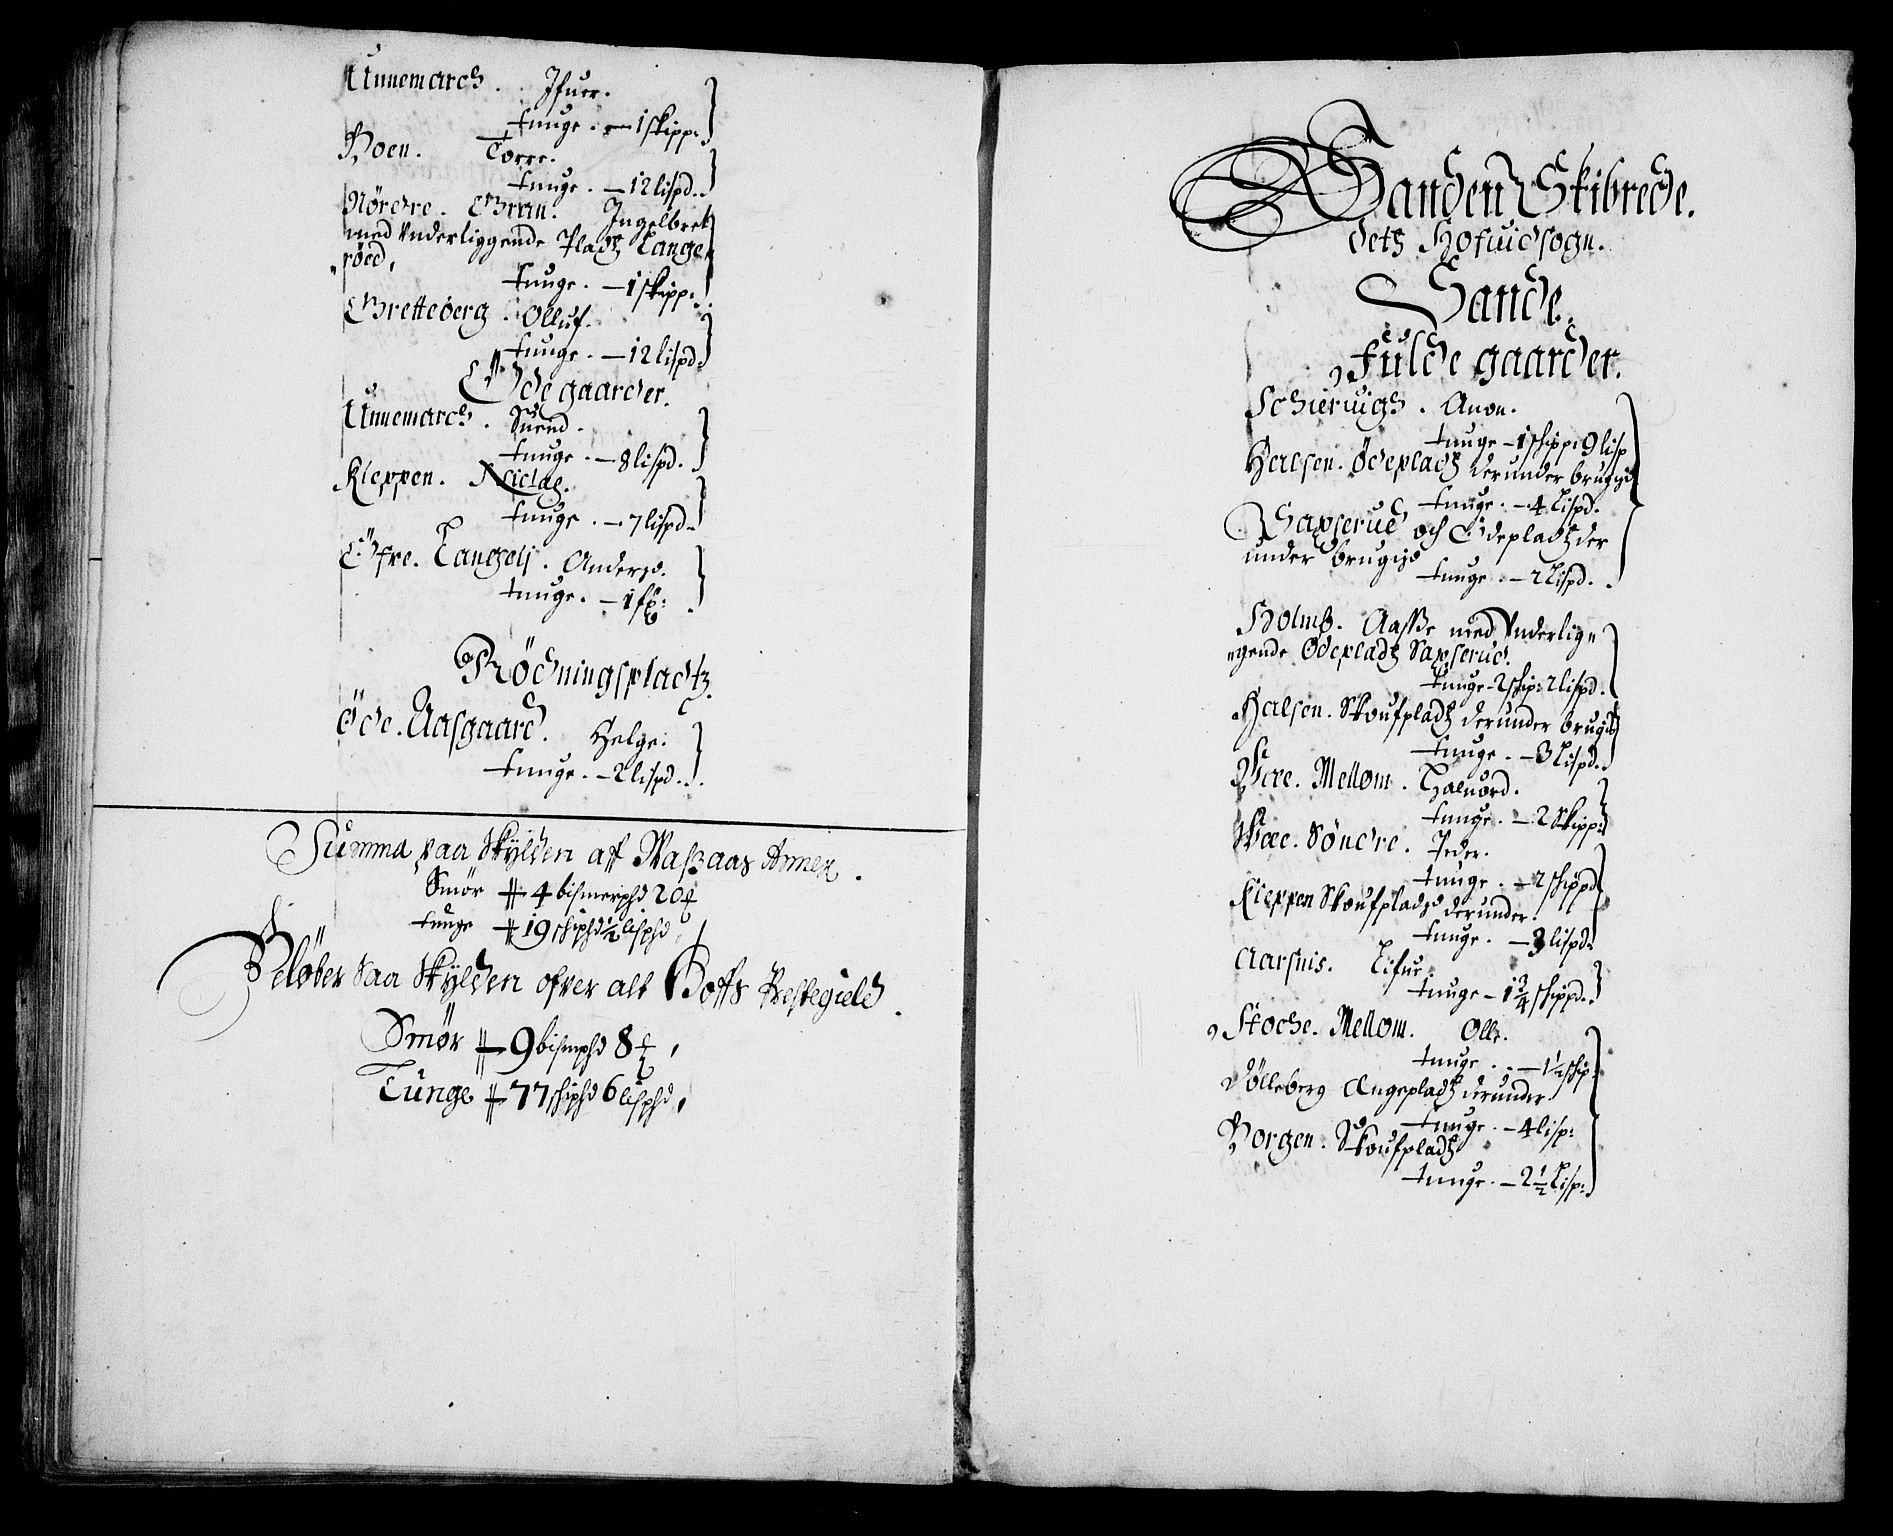 Unnemarch. Ifuer.
tunge. — 1 skipp:
Boen. Torre.
tunge. — 12 lispd.
Nördre. Gran. Ingelbret
med Vnderliggende Pladtz Lange„
„röed,
tunge. — 1 skipp:
Gretteberg. Olluf.
tunge. — 12 lispd.
Öde gaarder.
Unnemarch. Suend.
tunge. — 8 lispd.
Kleppen. Niclas.
tunge. — 7 lispd.
Öfre. Langelj. Anders.
tunge. — 1 fz:
Rödningspladtz.
Öde. Aasgaard. Helge.
tunge. — 2 lispd.
Summa paa Skylden aff Waßaas Annex.
Smör — 4 bismerphd 20
tunge — 19 schiphd ½ lisphd
Beløber Paa Skylden ofver alt Hoffs Prestegield.
Smör — 9 bismphd 8
Tunge — 77 schiphd 6 lisphd,
Sanden Skibrede.
dets Hofuidsogn.
Sande.
Fulde gaarder.
Schieruigh. Anon.
tunge — 1 schipp: 9 lisp
Halsen. Ödepladtz derunder brugis
tunge. — 4 Lispd.
Sapserud och Ödepladtz der
under brugis
tunge. — 2 Lispd.
Holmb. Aasße med Vnderlig„
„gende Ödepladtz Sapserud.
tunge — 2 schip: 2 lispd.
Halsen. Skoufpladtz derunder brugis
tunge. — 3 Lispd.
Wee. Mellom. Haluord.
tunge. — 2 Skipp:
Wee. Söndre. Peder.
tunge. — 2 schippd
Kleppen Skoufpladtz derunder.
tunge. — 3 lispd.
Aarsnis. Lifur.
tunge — 1¾ schippd.
Stoche. Mellom. Olle.
tunge. — 1½ schip:
Sölleberg Angepladtz derunder
tunge. — 4 lisp:
Borgen. Skoufpladtz
tunge. — 2½ Lisp: